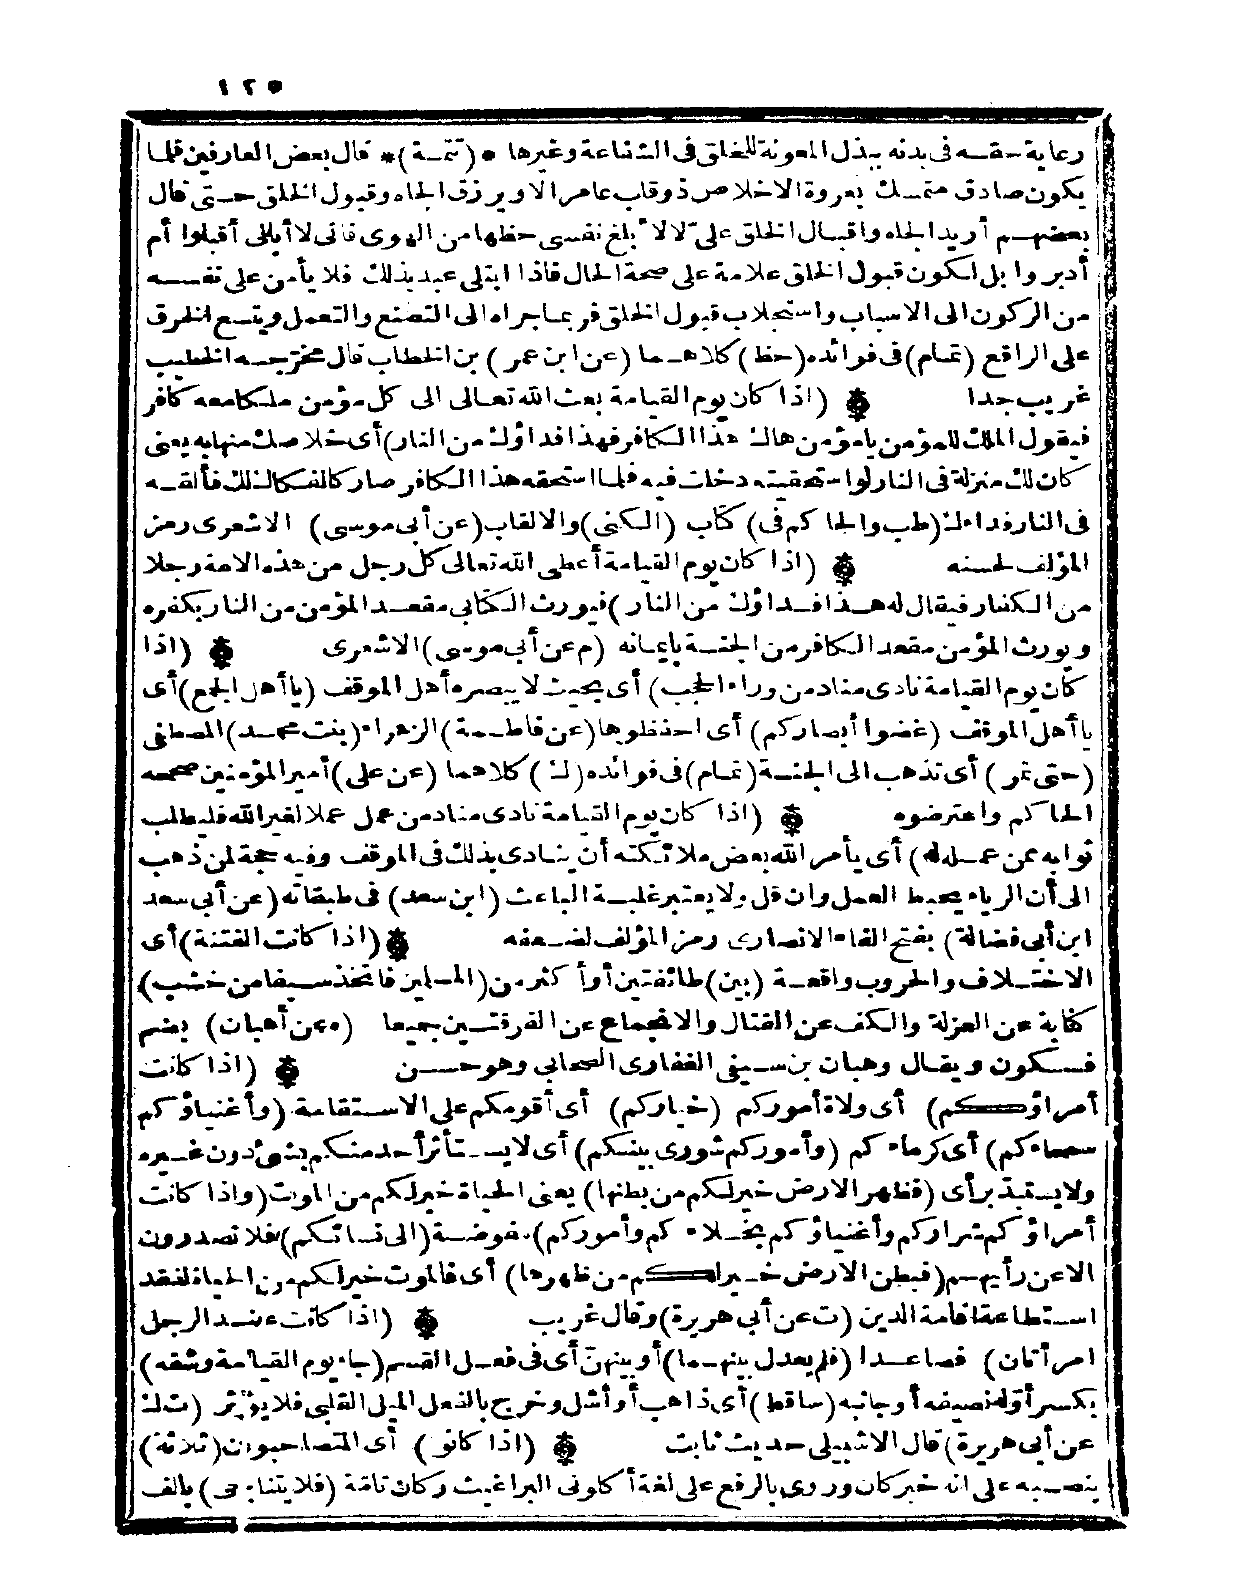 ١٢٥
رعاية حقه فى بدنه ببذل المعونة للخلق فى الشفاعة وغيرها * (تتمة) * قال بعض العارفين قلما
يكون صادق متمسك بعروة الاخلاص ذو قلب عامر الا ويرزق الجاه وقبول الخلق حتى قال
بعضهم أريد الجاه واقبال الخلق على لا لأبلغ نفسى حظها من الهوى فانى لا أبالى أقبلوا أم
أدبروا بل لكون قبول الخلق علامة على صحة الحال فاذا ابتلى عبد بذلك فلا يأمن على نفسه
من الركون الى الاسباب واستجلاب قبول الخلق فربما جراه الى التصنع والتعمل ويتسع الخرق
على الراقع (تمام) فى فوائده (خط) كلاهما (عن ابن عمر) بن الخطاب قال مخرجه الخطيب
غريب جدا (اذا كان يوم القيامة بعث الله تعالى الى كل مؤمن ملكا معه كافر
فيقول الملك للمؤمن يا مؤمن هاك هذا الكافر فهذا فداؤك من النار) أى خلاصك منها به يعنى
كان لك منزلة فى النار لو استحقيته دخلت فيه فلما استحقه هذا الكافر صار كالفكاك لك فألقه
فى النار فداءك (طب والحاكم فى) كتاب (الكنى) والالقاب (عن أبى موسى) الاشعرى رمز
المؤلف لحسنه (اذا كان يوم القيامة أعطى الله تعالى كل رجل من هذه الامة رجلا
من الكفار فيقال له هذا فداؤك من النار) فيورث الكتابى مقعد المؤمن من النار بكفره
ويورث المؤمن مقعد الكافر من الجنة بايمانه (م عن أبى موسى) الاشعرى (اذا
كان يوم القيامة نادى مناد من وراء الحجب) أى بحيث لا يبصره أهل الموقف (يا أهل الجمع) أى
يا أهل الموقف (غضوا أبصاركم) أى احفظوها (عن فاطمة) الزهراء (بنت محمد) المصطفى
(حتى تمر) أى تذهب الى الجنة (تمام) فى فوائده (ك) كلاهما (عن على) أمير المؤمنين صححه
الحاكم واعترضوه (اذا كان يوم القيامة نادى مناد من عمل عملا لغير الله فليطلب
ثوابه ممن عمله له) أى يأمر الله بعض ملائكته أن ينادى بذلك فى الموقف وفيه حجة لمن ذهب
الى أن الرياء يحبط العمل وان قل ولا يعتبر غلبة الباعث (ابن سعد) فى طبقاته (عن أبى سعد
ابن أبى فضالة) بفتح الفاء الانصارى رمز المؤلف لضعفه (اذا كانت الفتنة) أى
الاختلاف والحروب واقعة (بين) طائفتين أو أكثر من (المسلمين فاتخذ سيفا من خشب)
كناية عن العزلة والكف عن القتال والانجماع عن الفرقتين جميعا (ه عن أهبان) بضم
فسكون ويقال وهبان بن صيفى الغفارى الصحابى وهو حسن (اذا كانت
أمراؤكم) أى ولاة أموركم (خياركم) أى أقومكم على الاستقامة (وأغنياؤكم
سمحاءكم) أى كرماءكم (وأموركم شورى بينكم) أى لا يستأثر أحد منكم بشئ دون غيره
ولا يستبد برأى (فظهر الارض خير لكم من بطنها) يعنى الحياة خير لكم من الموت (واذا كانت
أمراؤكم شراركم وأغنياؤكم بخلاءكم وأموركم) مفوضة (الى نسائكم) فلا تصدرون
الا عن رأيهم (فبطن الارض خير لكم من ظهرها) أى فالموت خير لكم من الحياة لفقد
استطاعة اقامة الدين (ت عن أبى هريرة) وقال غريب (اذا كانت عند الرجل
امرأتان) فصاعدا (فلم يعدل بينهما) أو بينهن أى فى فعل القسم (جاء يوم القيامة وشقه)
بكسر أوله نصيفه أو جانبه (ساقط) أى ذاهب أو أشل وخرج بالفعل الميل القلبى فلا يؤثر (ت ك
عن أبى هريرة) قال الاشبيلى حديث ثابت (اذا كانوا) أى المتصاحبون (ثلاثة)
بنصبه على انه خبر كان وروى بالرفع على لغة أكلونى البراغيث وكان تامة (فلا يتناجى) بألف